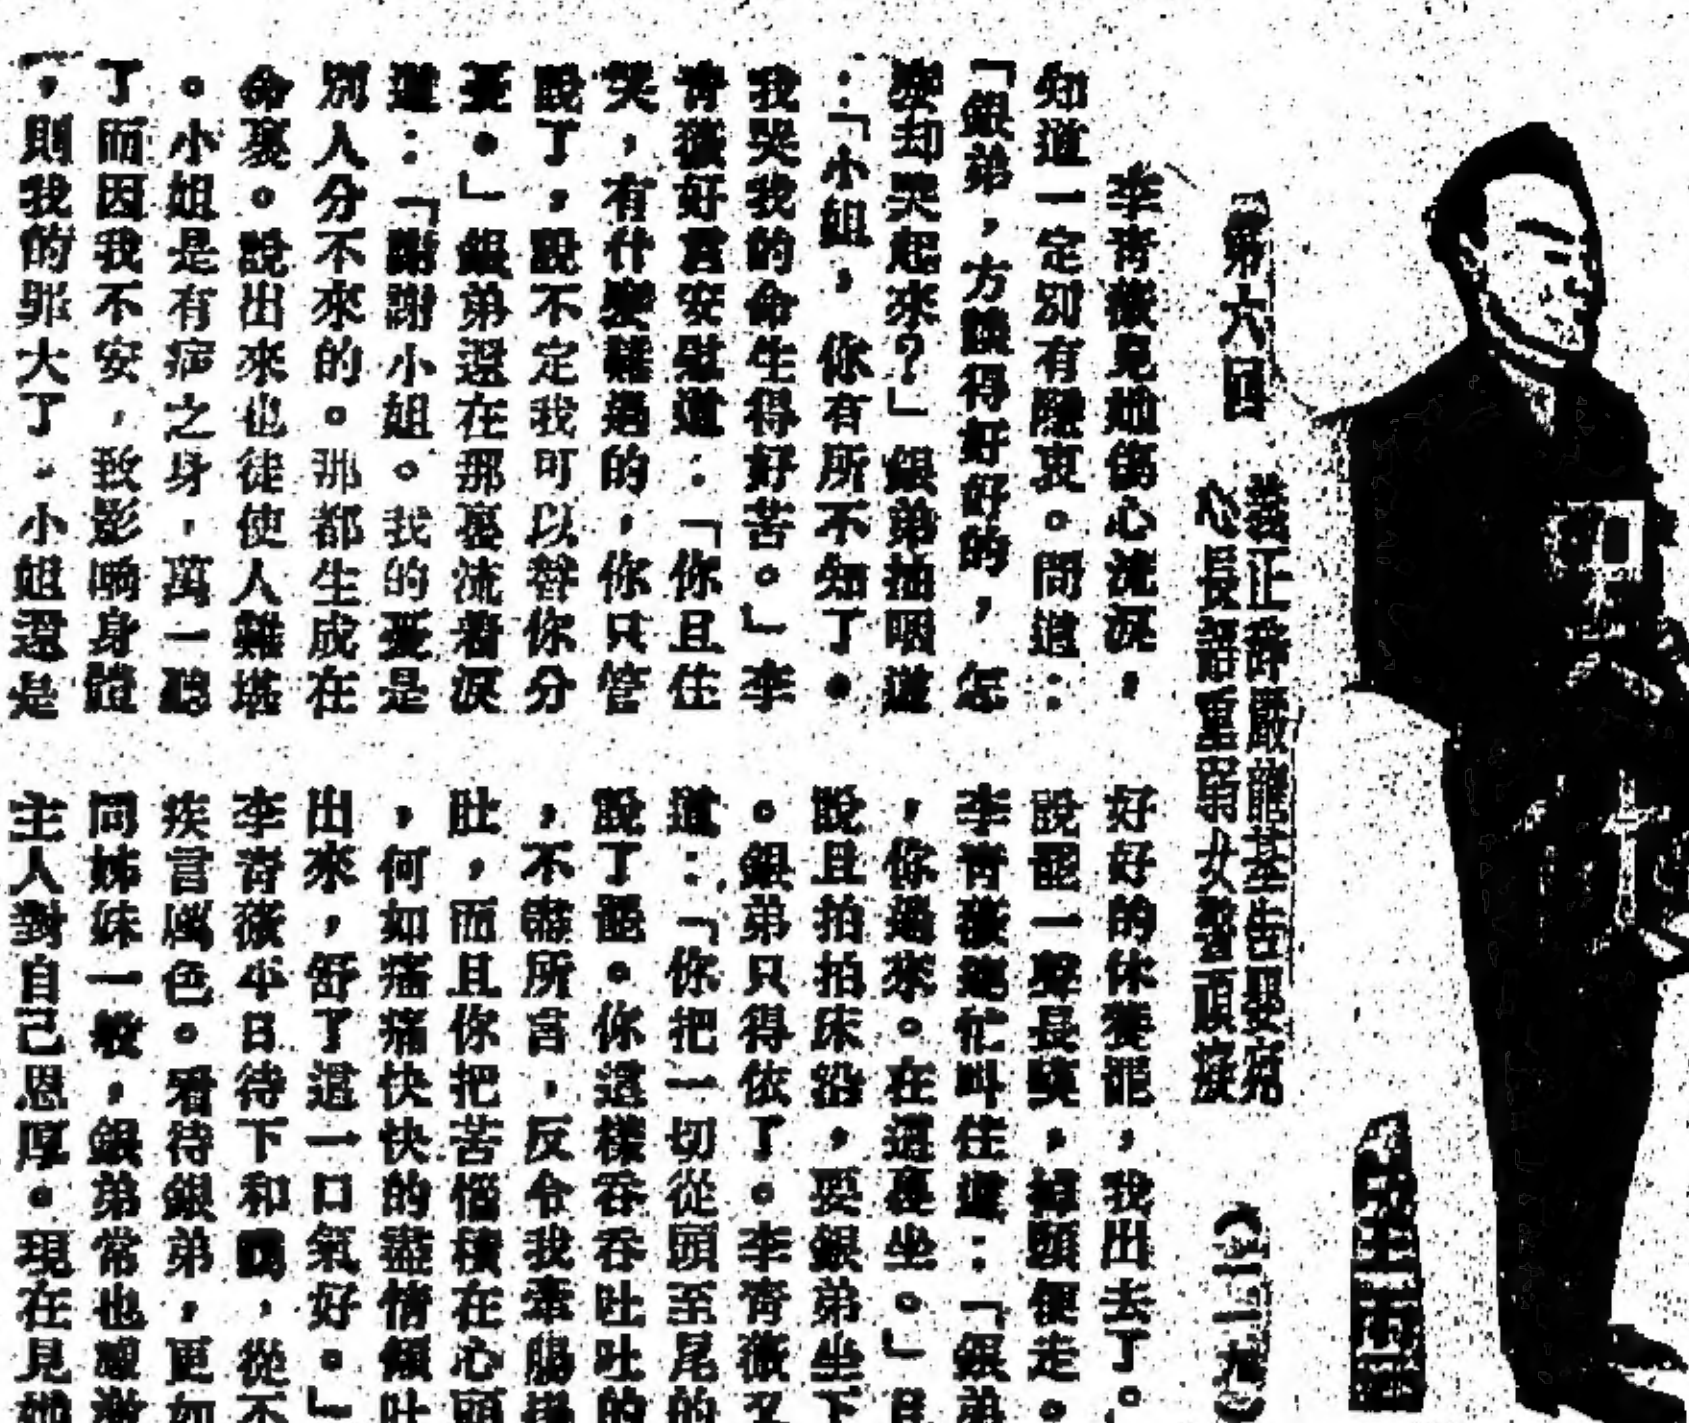 第六回
義正辞嚴龍基告嬰宛
心長語重弱女警頑癡
(三二九)
李青薇見她傷心流淚，
知道一定別有隱衷。問道：
「銀弟，方纔得好好的，怎
麼却哭起來？」銀弟抽咽道
：「小姐，你有所不知了。
我哭我的命生得好苦。」李
青薇好言安慰道：「你且住
哭，有什麼難過的，你只管
說了，說不定我可以替你分
憂。」銀弟還在那裏流着淚
道：「謝謝小姐。我的憂是
別人分不來的。那都生成在
命裏。說出來也徒使人難堪
。小姐是有病之身，萬一聽
了而因我不安，致影響身體
，則我的罪大了。小姐還是
好好的休養罷，我出去了。
說罷一聲長嘆，掉頭便走。
李青薇連忙叫住道：「銀弟
，你過來。在這裏坐。」且
說且拍拍床沿，要銀弟坐下
。銀弟只得依了。李青薇又
道：「你把一切從頭至尾的
說了罷。你這樣吞吞吐吐的
，不盡所言，反令我牽腸掛
肚，而且你把苦惱積在心頭
，何如痛痛快快的盡情傾吐
出來，舒了這一口氣好。」
李青薇平日待下和靄，從不
疾言厲色。看待銀弟，更如
同姊妹一般，銀弟常也感激
主人對自己恩厚。現在見她